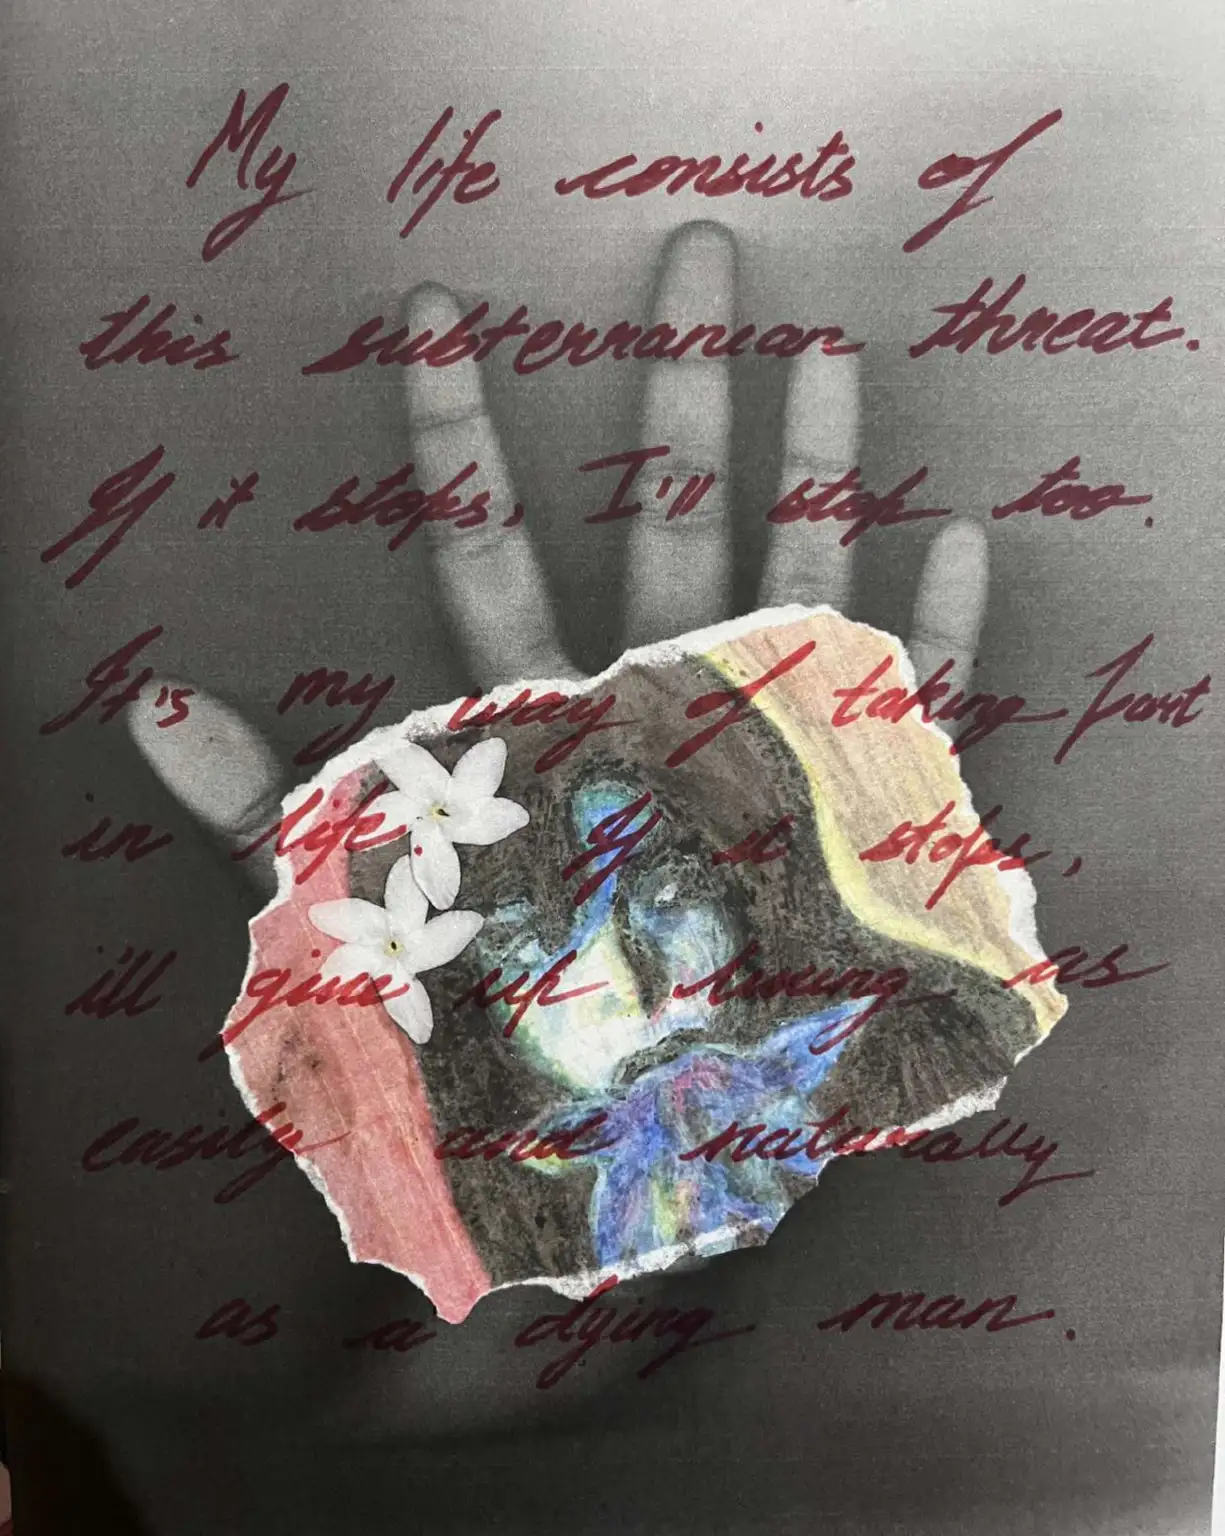 My life consists of
this subterranean threat.
If it stops, I'll stop too.
It's my way of taking part
in life. If it stops,
ill give up living as
easily and naturally
as a dying man.